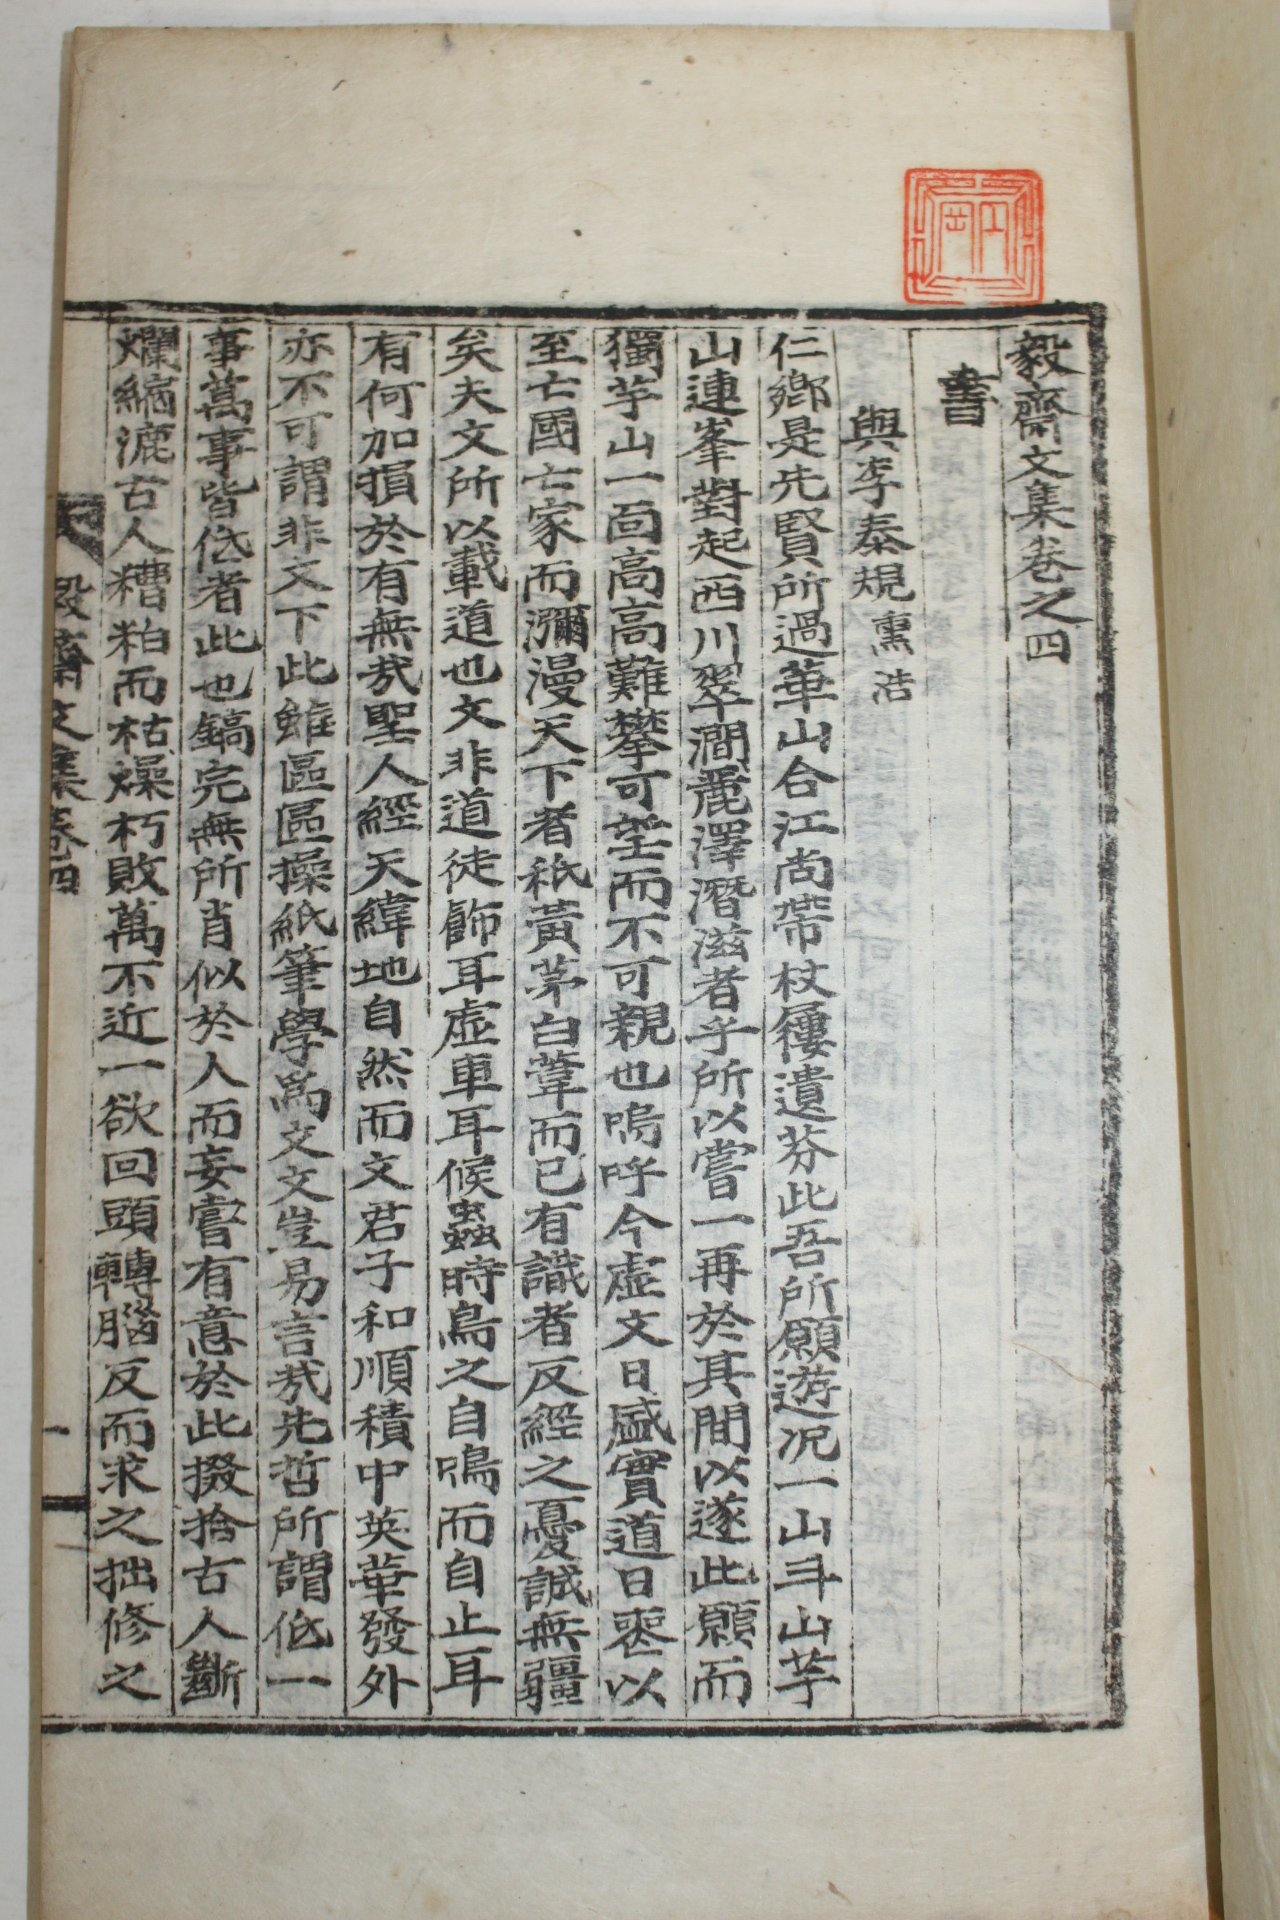 毅齋文集卷之四
書
與李泰規熏浩
仁鄕是先賢所過華山合江尚帶杖屨遺芬此吾所願遊况一山斗山芋
山連峯對起西川翠澗麗澤潛滋者乎所以嘗一再於其間以遂此願而
獨芋山一面高高難攀可望而不可親也嗚呼今虛文日盛實道日喪以
至亡國亡家而瀰漫天下者秖黃茅白葦而已有識者反經之憂誠無疆
矣夫文所以載道也文非道徒飾耳虛車耳候蟲時鳥之自鳴而自止耳
有何加損於有無㢤聖人經天緯地自然而文君子和順積中英華發外
亦不可謂非文下此雖區區操紙筆學爲文文豈易言㢤先哲所謂低一
事萬事皆低者此也鎬完無所肖似於人而妄嘗有意於此掇拾古人斷
爛編漉古人糟粕而枯燥朽敗萬不近一欲回頭轉腦反而求之拙修之
毅齋文集卷四
一